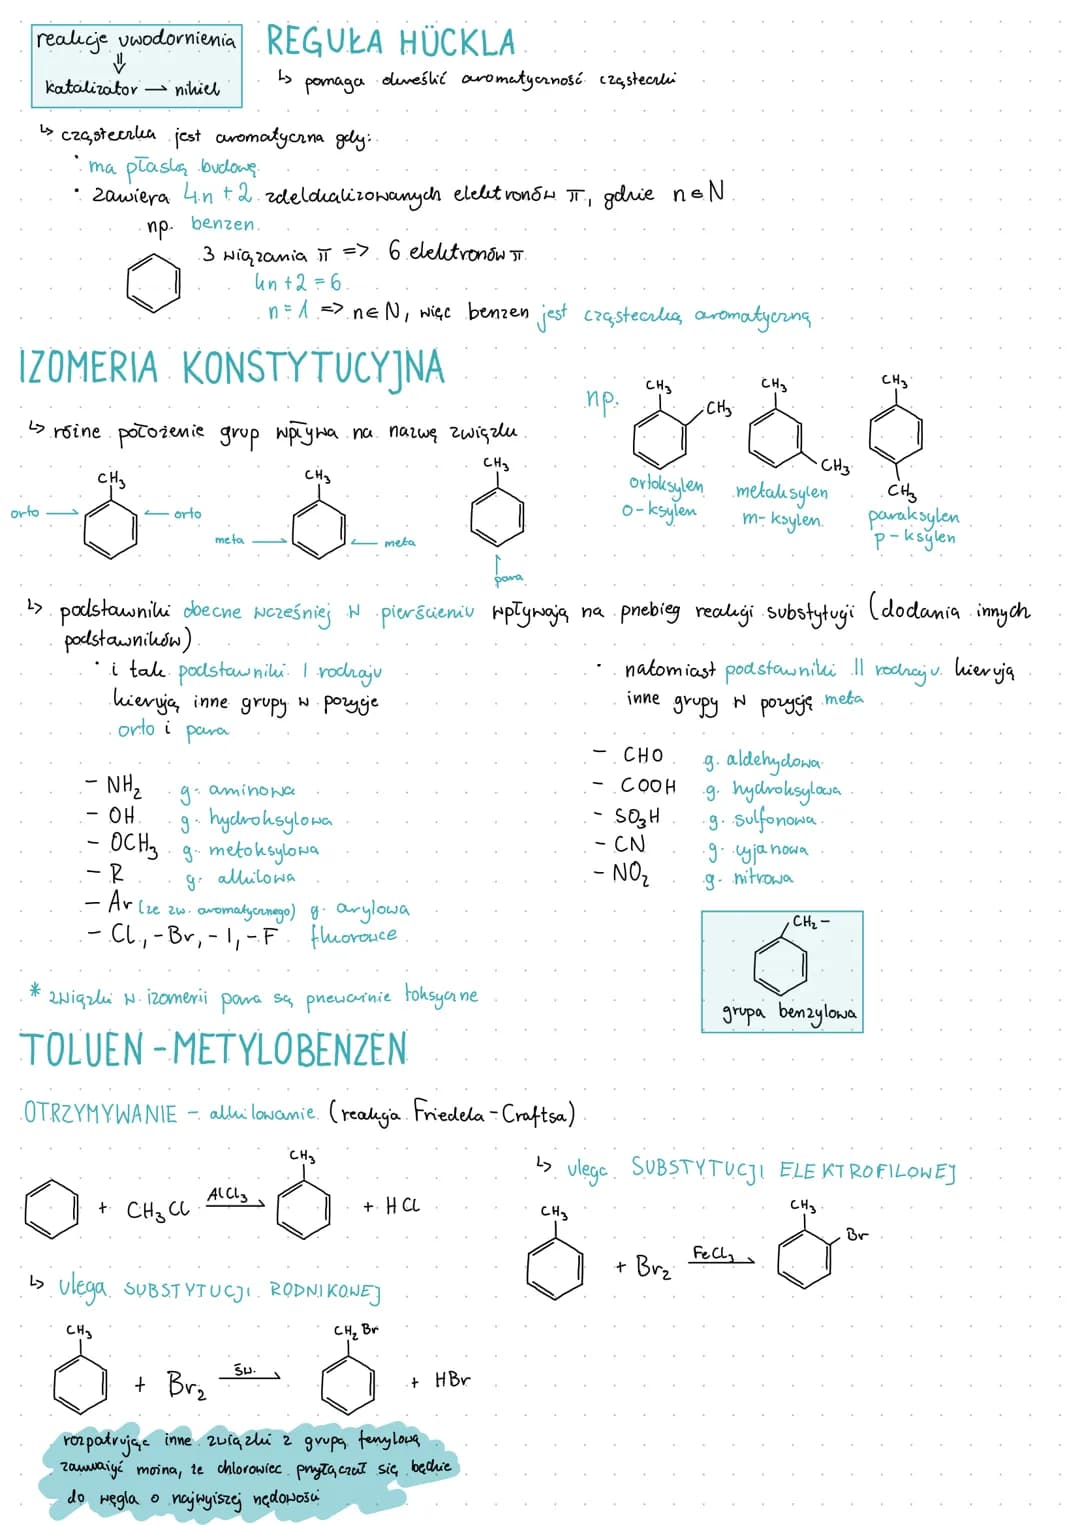 reakcje uwodornienia
⇓
katalizator → nikiel
REGUŁA HÜCKLA
↳ pomaga określić aromatyczność cząsteczki
↳ cząsteczka jest aromatyczna gdy:
• ma płaską budowę
• zawiera 4n + 2 zdelokalizowanych elektronów π, gdzie n∈N
np. benzen
3 wiązania π => 6 elektronów π
4n + 2 = 6
n = 1 => n∈N, więc benzen jest cząsteczką aromatyczną
IZOMERIA KONSTYTUCYJNA
↳ różne położenie grup wpływa na nazwę związku
CH₃
orto → ← orto
CH₃
meta → ← meta
CH₃
para
np.
CH₃
CH₃
ortoksylen
o-ksylen
CH₃
CH₃
metaksylen
m-ksylen
CH₃
CH₃
paraksylen
p-ksylen
↳ podstawniki obecne wcześniej w pierścieniu wpływają na przebieg reakcji substytucji (dodania innych
podstawników)
• i tak podstawniki I rodzaju
kierują inne grupy w pozycje
orto i para
- NH₂ g. aminowa
- OH g. hydroksylowa
- OCH₃ g. metoksylowa
- R g. alkilowa
- Ar (ze zw. aromatycznego) g. arylowa
- Cl, -Br, -I, -F fluorowce
• natomiast podstawniki II rodzaju kierują
inne grupy w pozycję meta
- CHO g. aldehydowa
- COOH g. hydroksylowa
- SO₃H g. sulfonowa
- CN g. cyjanowa
- NO₂ g. nitrowa
CH₂ -
grupa benzylowa
* związki w izomerii para są przeważnie toksyczne
TOLUEN - METYLOBENZEN
OTRZYMYWANIE - alkilowanie (reakcja Friedela-Craftsa)
+ CH₃Cl AlCl₃→ CH₃ + HCl
↳ ulega SUBSTYTUCJI ELEKTROFILOWEJ
CH₃ + Br₂ FeCl₃→ CH₃ Br
↳ ulega SUBSTYTUCJI RODNIKOWEJ
CH₃ + Br₂ św.→ CH₂Br + HBr
rozpatrując inne związki z grupą fenylową
zauważyć można, że chlorowiec przyłączał się będzie
do węgla o najwyższej rzędowości